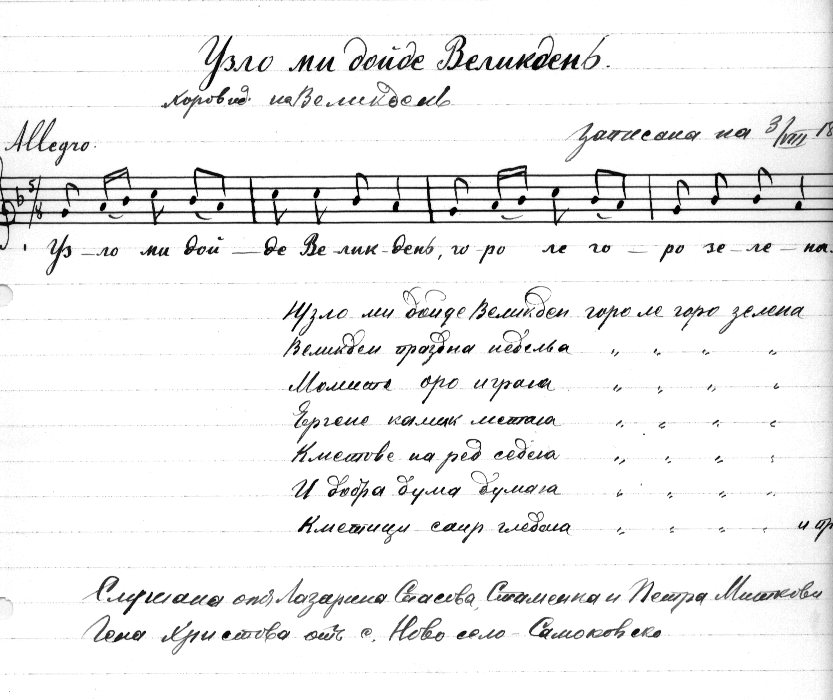 Узло ми дойде Великденъ.
Хоровод. на Великденъ
Allegro.
Записана на 3/VIII 18
5/8
Уз – ло ми дой – де Ве – лик – денъ, го – ро ле го – ро зе – ле – на.
Узло ми дойде Великден горо ле горо зелена
Великден празна неделя " " " "
Момите оро играха " " " "
Ергене камик метаха " " " "
Кметове на ред седеха " " " "
И добра дума думаха " " " "
Кметици саир гледаха " " " " и ор
Слушана отъ Лазарина Стасова, Стаменка и Петра Миткови
Гена Христова отъ с. Ново село – Самоковско